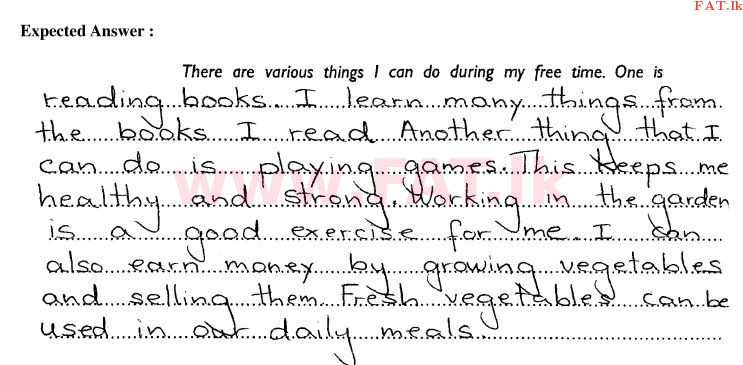 FAT.lk
Expected Answer :
There are various things I can do during my free time. One is
reading books. I learn many things from
the books I read Another thing that I
can do is playing games. This keeps me
healthy and strong. Working in the garden
is a good exercise for me. I can
also earn money by growing vegetables
and selling them. Fresh vegetables can be
used in our daily meals.
www.FAT.lk